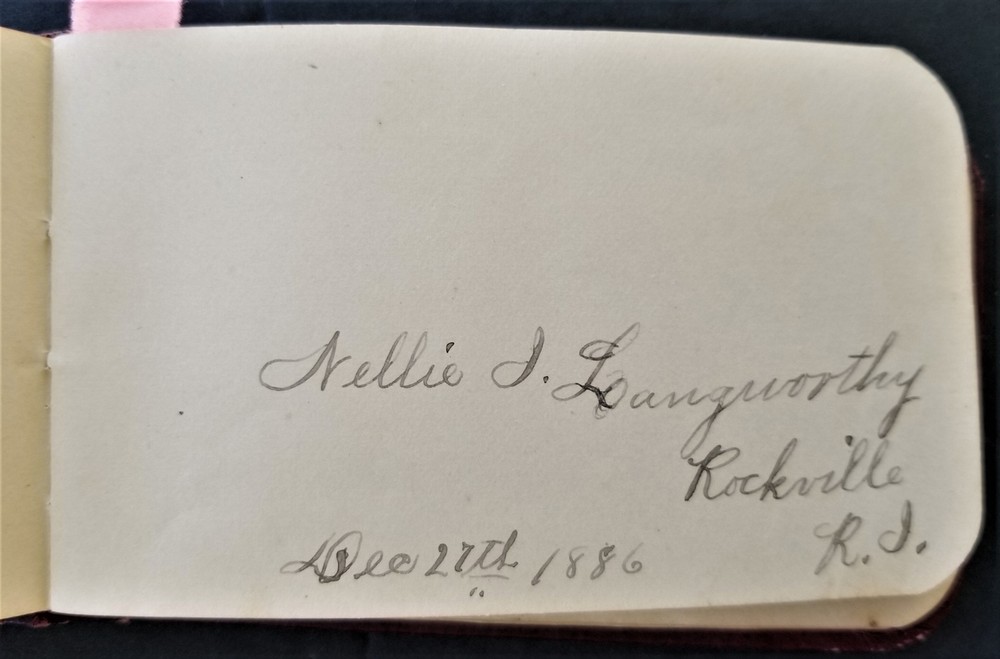 Nellie I. Langworthy
Rockville
R. I.
Dec 27th 1886